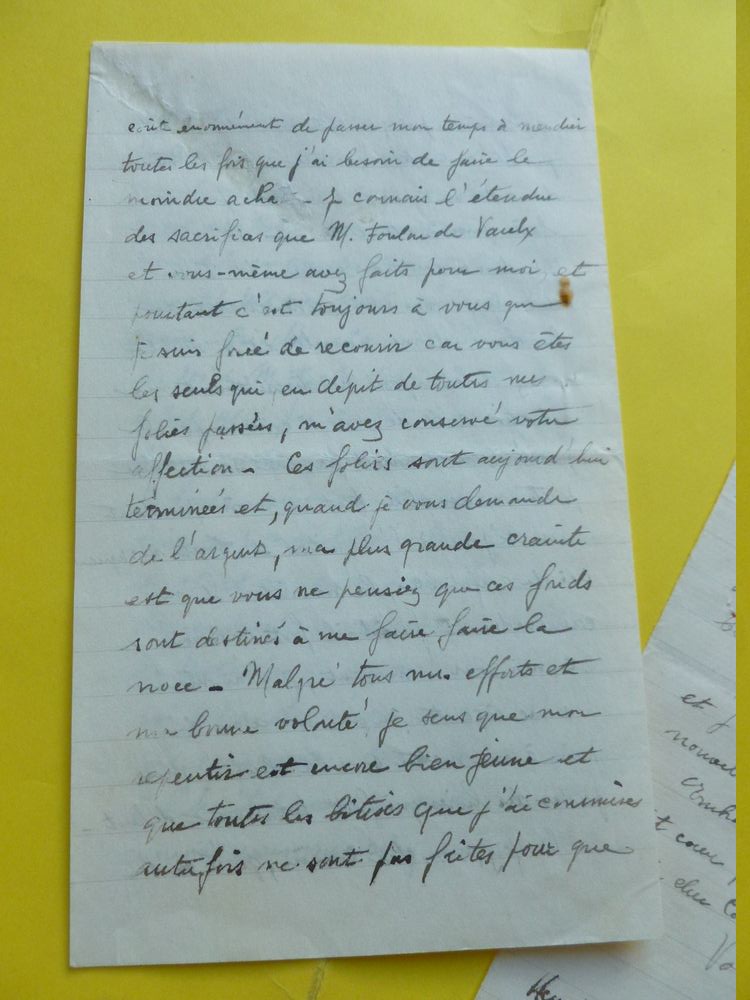 coûte énormément de passer mon temps à mendier
toutes les fois que j'ai besoin de faire le
moindre achat - Je connais l'étendue
des sacrifices que M. Foulon de Vaulx
et vous-même avez faits pour moi et
pourtant c'est toujours à vous que
je suis forcé de recourir car vous êtes
les seuls qui, en dépit de toutes mes
folies passées, m'avez conservé votre
affection - Ces folies sont aujourd'hui
terminées et, quand je vous demande
de l'argent, ma plus grande crainte
est que vous ne pensiez que ces fonds
sont destinés à me faire faire la
noce - Malgré tous mes efforts et
ma bonne volonté je sens que mon
repentir est encore bien jeune et
que toutes les bêtises que j'ai commises
autrefois ne sont pas faites pour que
et
cœur
cher